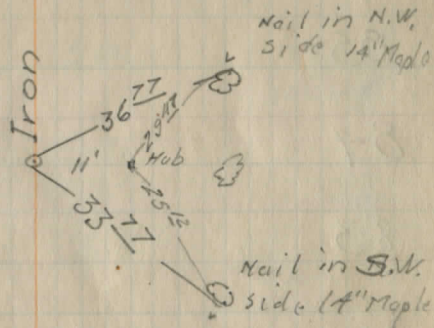 Nail in N.W.
side 14" Maple
Iron
36 77
11'
Hub
25 12
33 77
Nail in S.W.
side 14" Maple